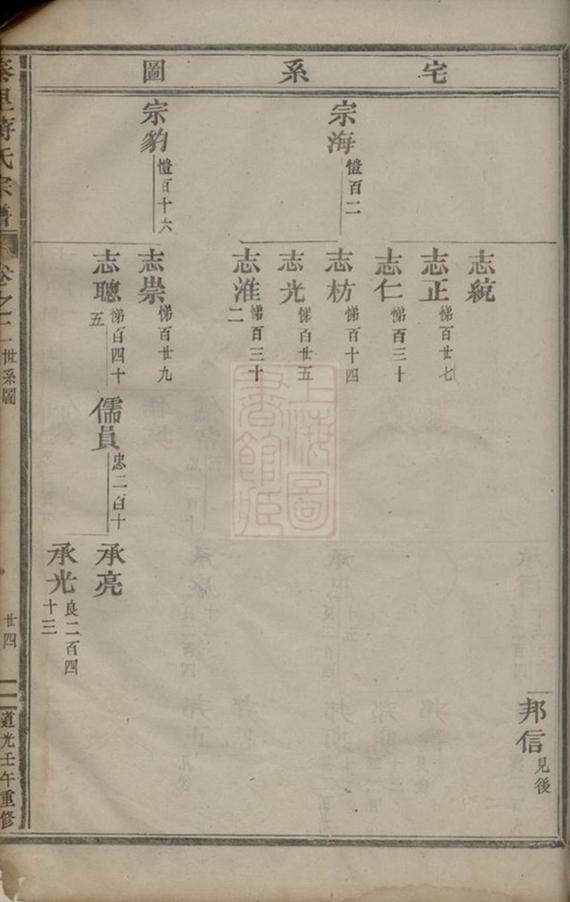 宅系圖
邦信見後
宗海愷百二
志統
志正悌百廿七
志仁悌百三十
志枋悌百十四
志光悌百廿五
志淮悌百三十二
宗豹愷百十六
志崇悌百廿九
志聰悌百四十五
儒員忠二百十
承亮
承光良二百四十三
蔣氏宗譜
卷之二世系圖
廿四
道光壬午重修
上海圖書館藏